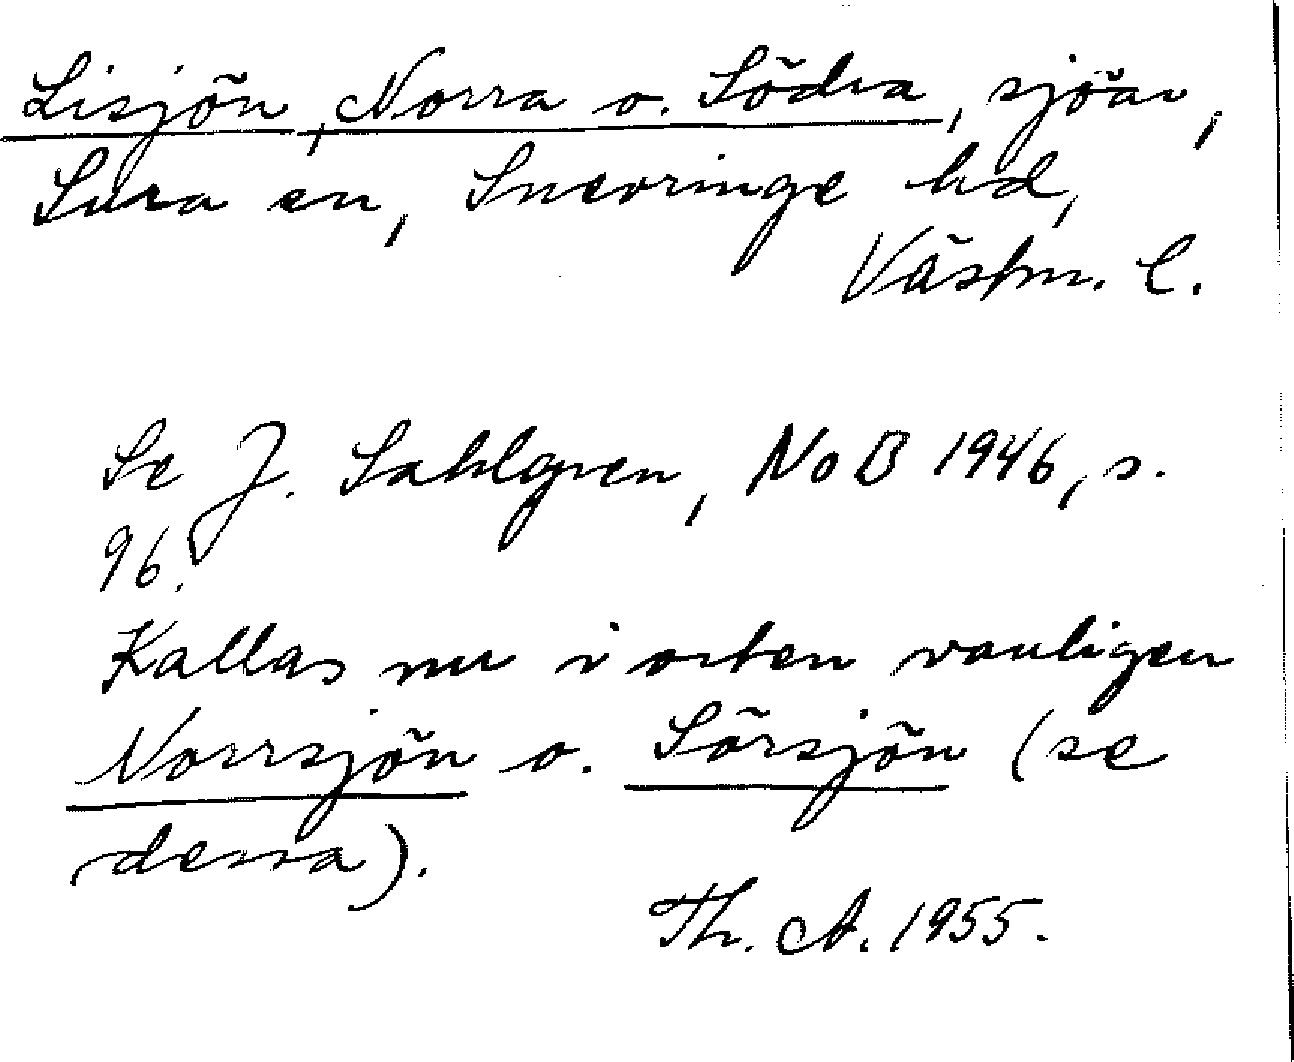 Lisjön, Norra o. Södra, sjöar,
Sura sn, Snevringe hd,
Västm. l.
Se J. Sahlgren, NoB 1946, s.
96.
Kallas nu i orten vanligen
Norrsjön o. Sörsjön (se
dessa).
Th. A. 1955.